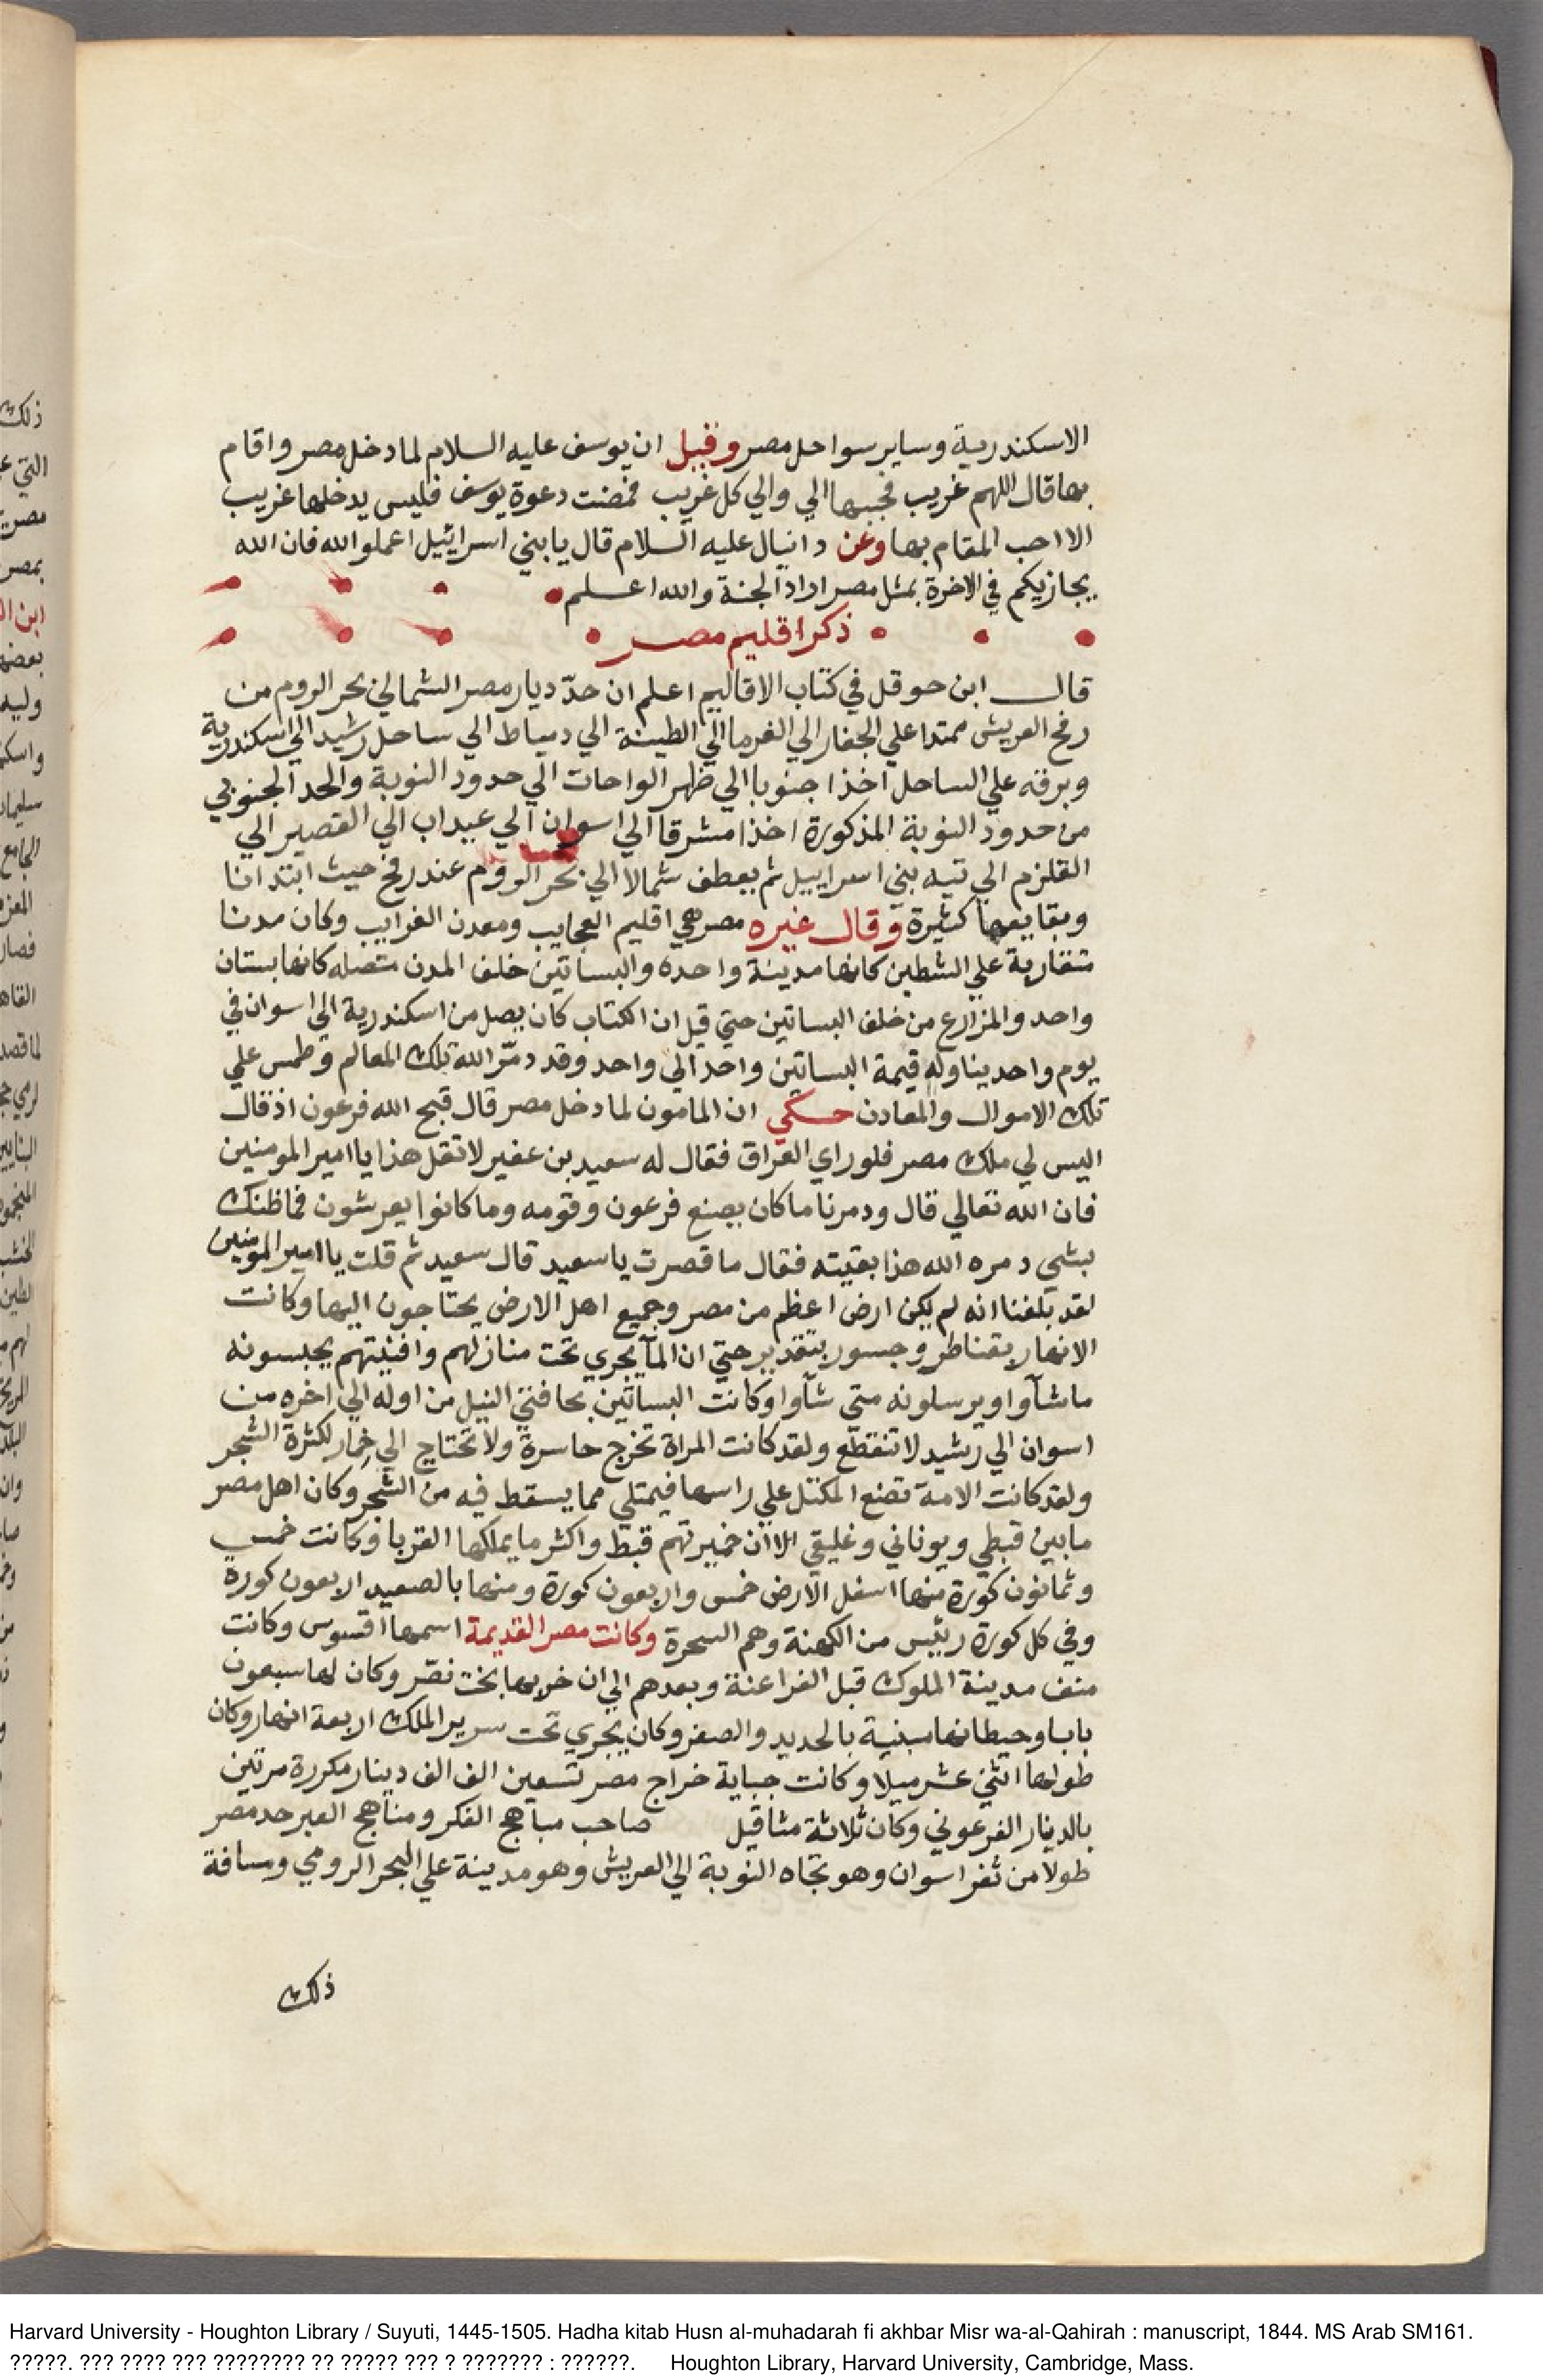 الاسكندرية وساير سواحل مصر وقيل ان يوسف عليه السلام لما دخل مصر واقام
بها قال اللهم غريب فحببها الي والي كل غريب فمضت دعوة يوسف فليس يدخلها غريب
الا احب المقام بها وعن دانيال عليه السلام قال يا بني اسرائيل اعملوا لله فان الله
يجازيكم في الاخرة بمثل مصر اراد الجنة والله اعلم
ذكر اقليم مصر
قال ابن حوقل في كتاب الاقاليم اعلم ان حدّ ديار مصر الشمالي بحر الروم من
رفح العريش ممتدا علي الجفار الي الفرما الي الطينة الي دمياط الي ساحل رشيد الي اسكندرية
وبرقه علي الساحل اخذا جنوبا الي ظهر الواحات الي حدود النوبة والحد الجنوبي
من حدود النوبة المذكورة اخذا مشرقا الي اسوان الي عيداب الي القصير الي
القلزم الي تيه بني اسراييل ثم يعطف شمالا الي بحر الروم عند رفح حيث ابتدانا
وبقايعها كثيرة وقال غيره مصر هي اقليم العجايب ومعدن الغرايب وكان مدنا
متقاربة علي الشطين كانها مدينة واحده والبساتين خلف المدن متصله كانها بستان
واحد والمزارع من خلف البساتين حتي قيل ان الكتاب كان يصل من اسكندرية الي اسوان في
يوم واحد يناوله قيمة البساتين واحد الي واحد وقد دمّر الله تلك المعالم وطمس علي
تلك الاموال والمعادن حكي ان المامون لما دخل مصر قال قبح الله فرعون اذ قال
اليس لي ملك مصر فلو راي العراق فقال له سعيد بن عفير لا تقل هذا يا امير المومنين
فان الله تعالي قال ودمرنا ما كان يصنع فرعون وقومه وما كانوا يعرشون فما ظنك
بشي دمره الله هذا بقيته فقال ما قصرت يا سعيد قال سعيد ثم قلت يا امير المومنين
لقد بلغنا انه لم يكن ارض اعظم من مصر وجميع اهل الارض يحتاجون اليها وكانت
الانهار بقناطر وجسور بتقدير حتي ان المآ يجري تحت منازلهم وافنيتهم يحبسونه
ما شآوا ويرسلونه متي شآوا وكانت البساتين بحافتي النيل من اوله الي اخره من
اسوان الي رشيد لا تنقطع ولقد كانت المراة تخرج حاسرة ولا تحتاج الي خمار لكثرة الشجر
ولقد كانت الامة تضع المكتل علي راسها فيمتلي مما يسقط فيه من الشجر وكان اهل مصر
ما بين قبطي ويوناني وعليقي الا ان خميرتهم قبط واكثر ما يملكها الغربا وكانت خمس
وثمانون كورة منها اسفل الارض خمس واربعون كورة ومنها بالصعيد اربعون كورة
وفي كل كورة رئيس من الكهنة وهم السحرة وكانت مصر القديمة اسمها اقسوس وكانت
منف مدينة الملوك قبل الفراعنة وبعدهم الي ان خربها بخت نصّر وكان لها سبعون
بابا وحيطانها مبنية بالحديد والصفر وكان يجري تحت سرير الملك اربعة انهار وكان
طولها اثني عشر ميلا وكانت جباية خراج مصر تسعين الف الف دينار مكررة مرتين
بالدينار الفرعوني وكان ثلاثة مثاقيل صاحب مباهج الفكر ومناهج العبر حد مصر
طولا من ثغر اسوان وهو تجاه النوبة الي العريش وهو مدينة علي البحر الرومي ومسافة
ذلك
Harvard University - Houghton Library / Suyuti, 1445-1505. Hadha kitab Husn al-muhadarah fi akhbar Misr wa-al-Qahirah : manuscript, 1844. MS Arab SM161.
?????. ??? ???? ??? ???????? ?? ????? ??? ? ??????? : ??????. Houghton Library, Harvard University, Cambridge, Mass.